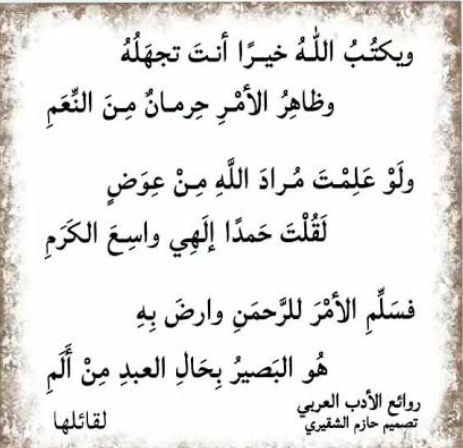 ويكتُبُ اللّٰهُ خيـرًا أنـتَ تجهَلُهُ
وظاهِرُ الأمْـرِ حِرمـانٌ مِـنَ النِّعَمِ
ولَوْ عَلِمْـتَ مُـرادَ اللَّهِ مِـنْ عِوَضٍ
لَقُلْتَ حَمدًا إلَهِي واسِـعَ الكَرَمِ
فسَلِّمِ الأمْرَ للرَّحمَنِ وارضَ بِهِ
هُو البَصيرُ بِحَالِ العبدِ مِنْ أَلَمِ
روائع الأدب العربي
تصميم حازم الشقيري
لقائلها